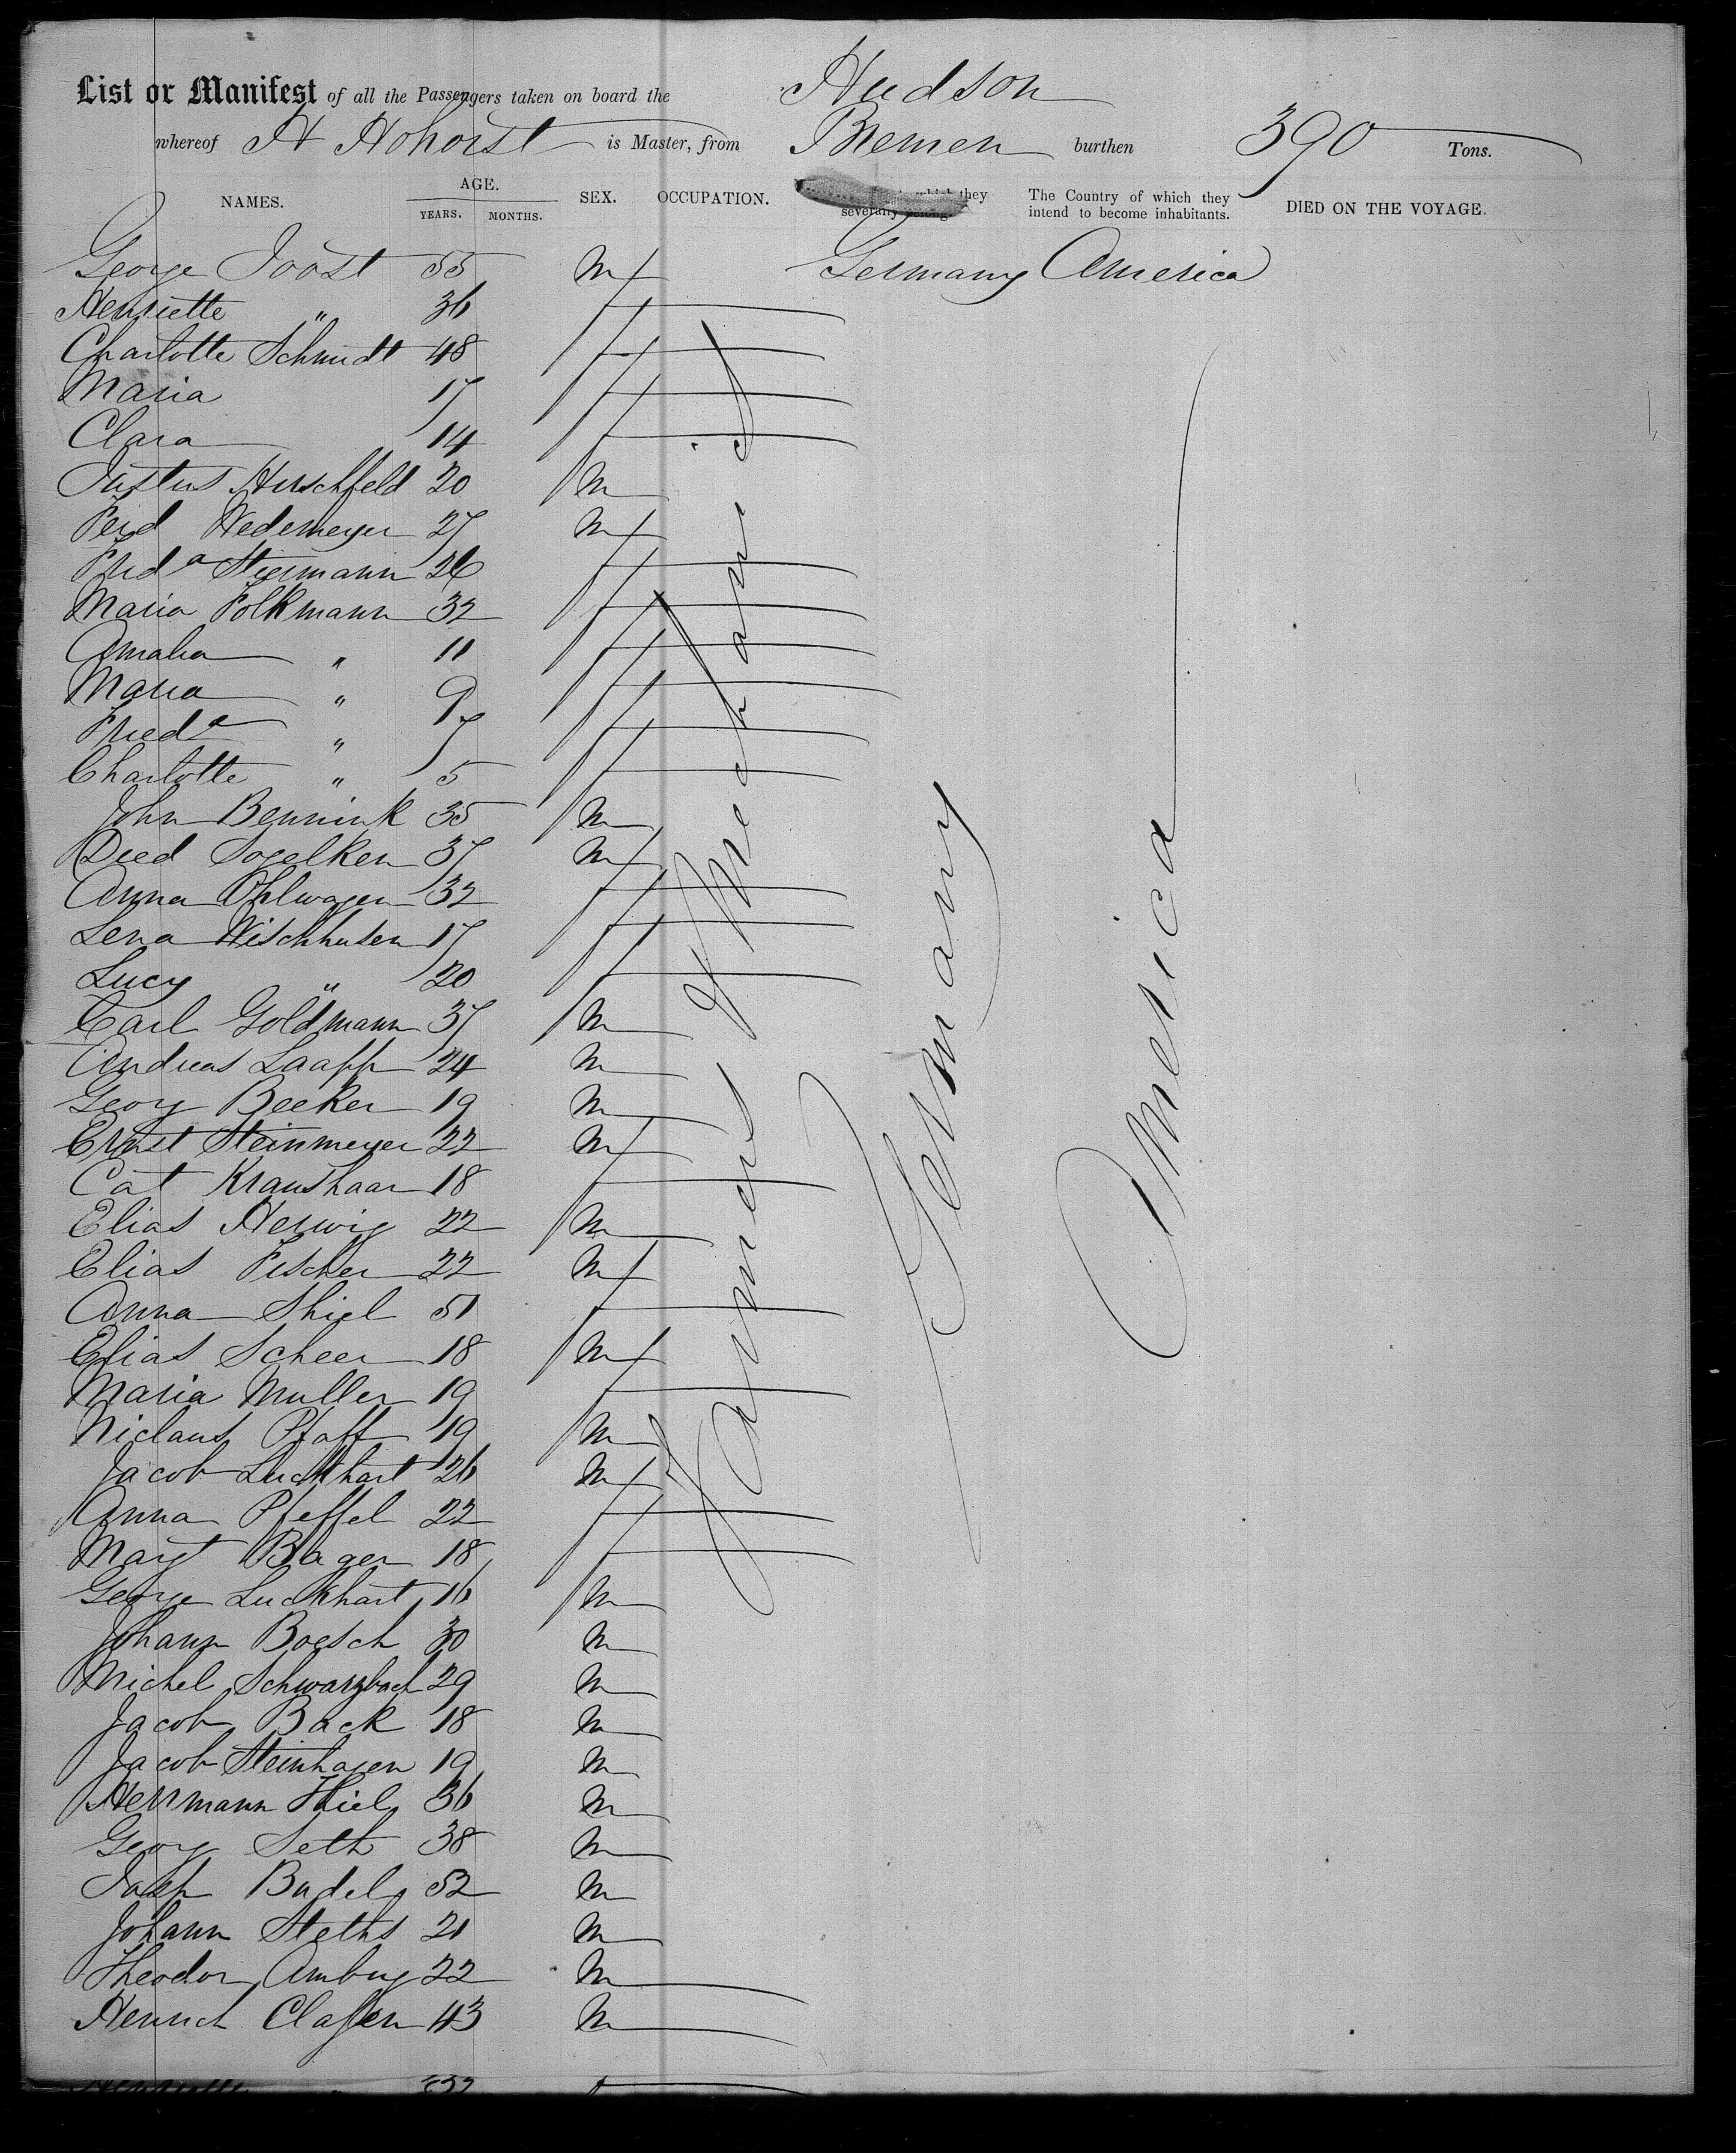 List or Manifest of all the Passengers taken on board the Hudson
whereof H Hohorst is Master, from Bremen burthen 390 Tons.
NAMES. AGE. YEARS. MONTHS. SEX. OCCUPATION. which they severally belong. The Country of which they intend to become inhabitants. DIED ON THE VOYAGE.
George Joost 55 m Germany America
Henriette " 36 f
Charlotte Schmidt 48 f
Maria 17 f
Clara 14 f
Justus Hirschfeld 20 m
Ferd Wedemeyer 27 m
Fred a Stegmann 26 f
Maria Folkmann 32 f
Amalia " 11 f
Maria " 9 f
Fried a " 7 f
Charlotte " 5 f
John Bennink 35 m
Died Sogelken 37 m
Anna Ohlwagen 32 f
Lena Wischhusen 17 f
Lucy " 20 f
Carl Goldmann 37 m
Andreas Laapp 24 m
Georg Becker 19 m
Ernst Steinmeyer 22 m
Cat Kraushaar 18 f
Elias Herwig 22 m
Elias Fischer 22 m
Anna Thiel 51 f
Elias Scheer 18 m
Maria Muller 19 f
Niclaus Pfaff 19 m
Jacob Luckhart 26 m
Anna Pfeffel 22 f
Margt Bager 18 f
George Luckhart 16 m
Johann Boesch 30 m
Michel Schwarzbach 29 m
Jacob Back 18 m
Jacob Steinhagen 19 m
Herrmann Thiel 36 m
Georg Seth 38 m
Budel 52 m
Johann Steths 21 m
Theodor Amburg 22 m
Heinrich Clasen 43 m
Henriette " 32 f
Farmers & Mechanics
Germany
America